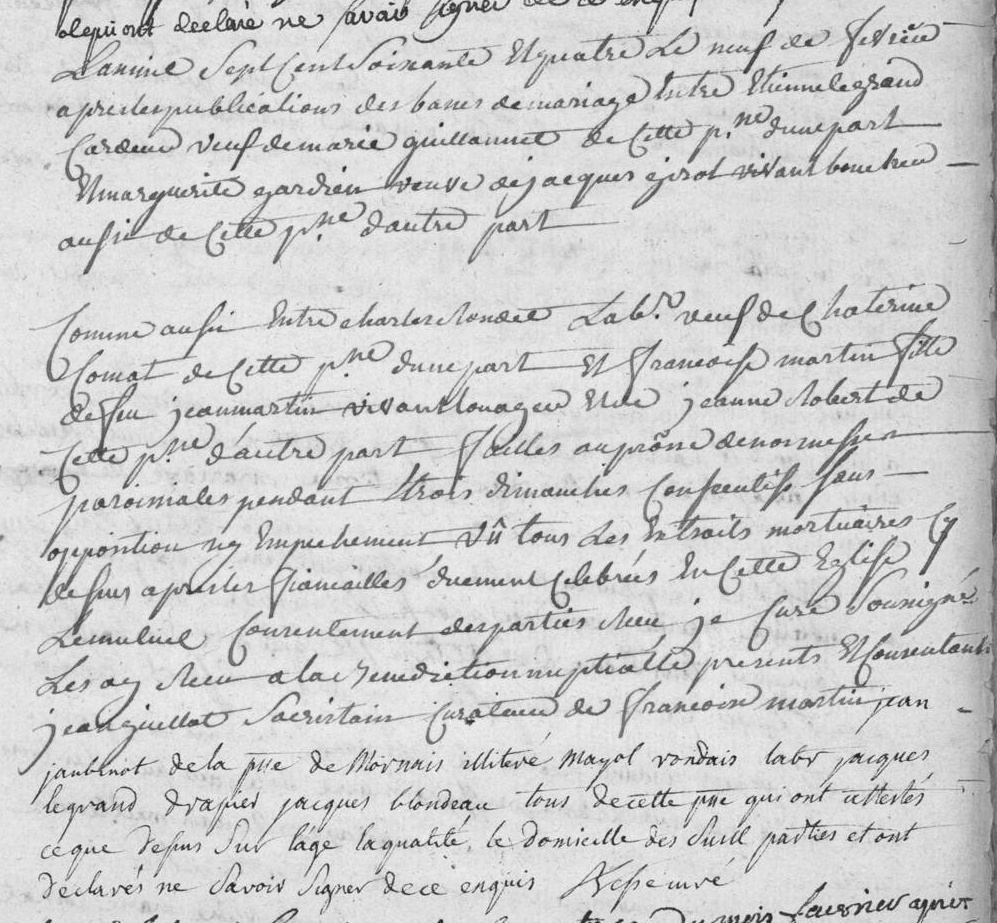 ont declaré ne savoir signer de ce enquis
L'an mil Sept Cent Soixante Et quatre Le neuf de fevrier
apres les publications des bans de mariage Entre Etienne legrand
Cardeur veuf de marie guillaumet de Cette p.ne d'une part
Et marguerite gardien veuve de jacques girot vivant boucher
aussi de Cette p.ne d'autre part
Comme aussi Entre charles Lab.r veuf de Chaterine
Comat de Cette p.ne d'une part Et francoise martin fille
de feu jean martin vivant Et de jeanne Robert de
Cette p.ne d'autre part faittes au prône de nos messes
paroissiales pendant trois dimanches Consecutifs sans
opposition ny Empechement vû tous Les Extraits mortuaires Cy
dessus apres les fiancailles duement Celebrées En Cette Eglise
Le mutuel Consentement des parties Receu je Curé Soussigné
Les ay Receu a la Benediction nuptialle presents Et Consentants
jean guillot Sacristain Curateur de francoise martin jean
jaubinot de la p.sse de Mornais illiteré mayol rondais labr jacques
legrand drapier jacques blondeau tous de cette p.sse qui ont attestés
ce que dessus Sur l'âge la qualité, le Domicille des Sud. parties et ont
Declarés ne Savoir Signer de ce enquis curé